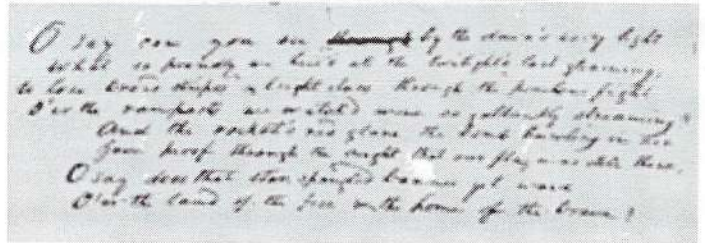 O say can you see through by the dawn's early light
What so proudly we hail'd at the twilight's last gleaming,
Whose broad stripes & bright stars through the perilous fight
O'er the ramparts we watch'd were so gallantly streaming?
And the rocket's red glare, the bomb bursting in air
Gave proof through the night that our flag was still there,
O say does that star-spangled banner yet wave
O'er the land of the free & the home of the brave?